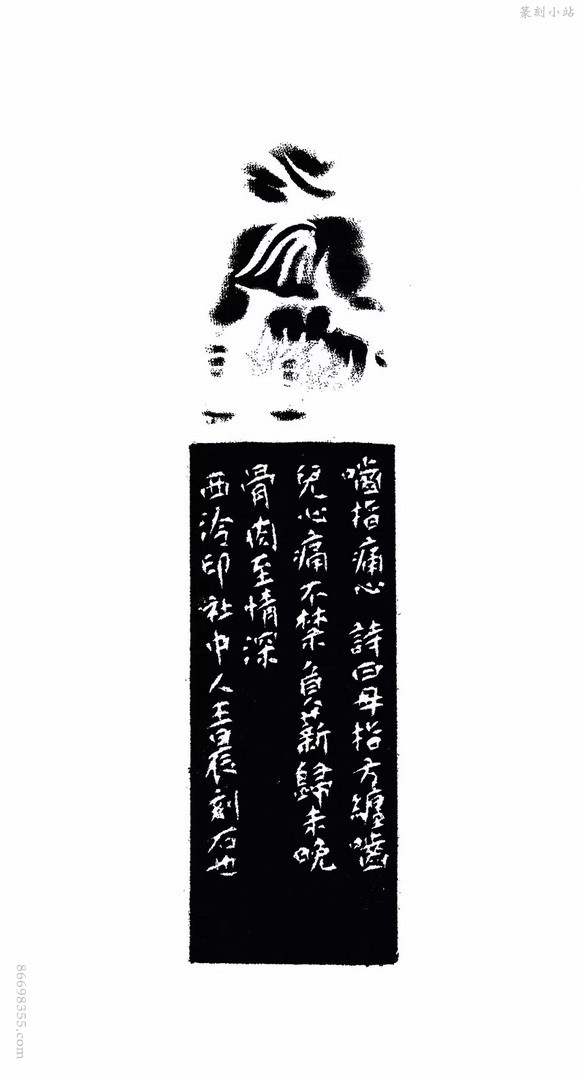 篆刻小站
嚙指痛心 詩曰母指方纏嚙
兒心痛不禁負薪歸未晚
骨肉至情深
西泠印社中人王刻石也
86698355.com